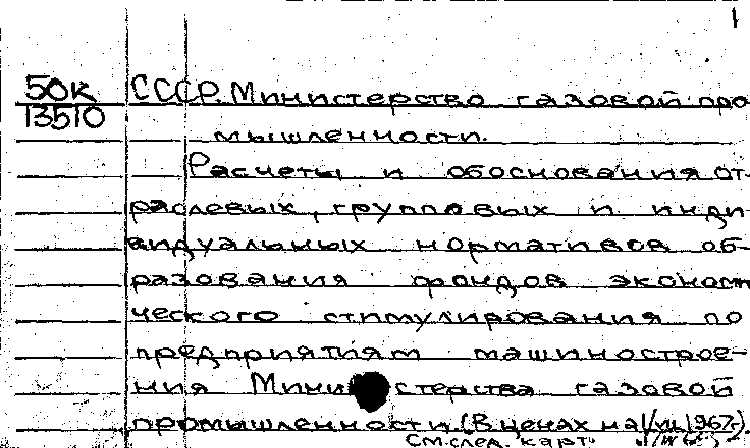 1
50К СССР. Министерство газовой про
13510
мышленности.
Расчеты и обоснования от-
раслевых, групповых и инди
видуальных нормативов об-
разования фондов эконом
ческого стимулирования по
предприятиям машинострое-
ния Министерства газовой
промышленности (В ценах на 1/VII 1967г).
см. след. карт.